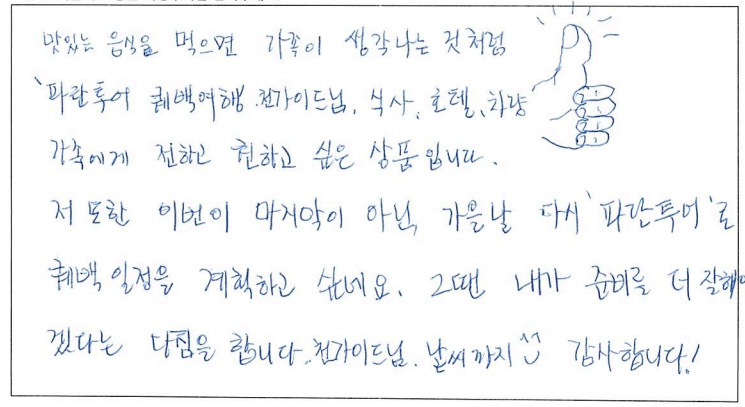 맛있는 음식을 먹으면 가족이 생각나는 것처럼
'파란투어 퀘백여행 천가이드님, 식사, 호텔, 차량
가족에게 전하고 권하고 싶은 상품입니다.
저 또한 이번이 마지막이 아닌, 가을날 다시 '파란투어'로
퀘백 일정을 계획하고 싶네요. 그땐 내가 준비를 더 잘해야
겠다는 다짐을 합니다. 천가이드님. 날씨까지 ^^ 감사합니다!